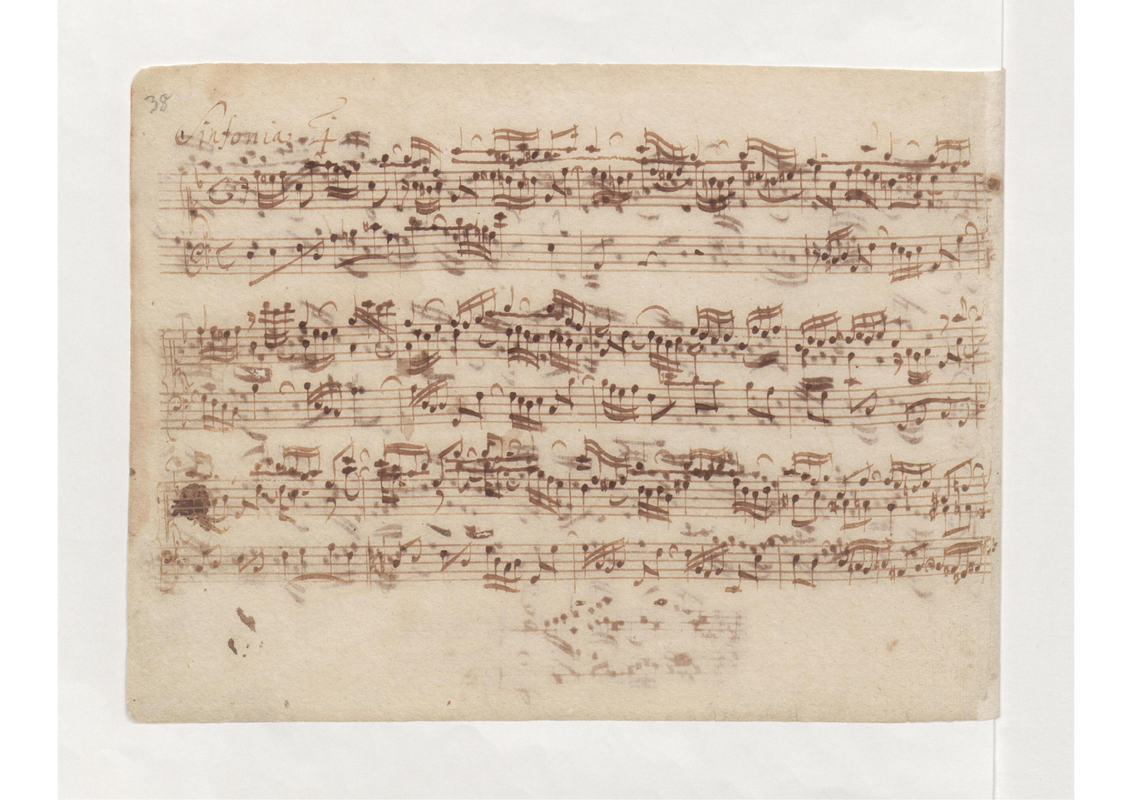 38
Sinfonia. 4